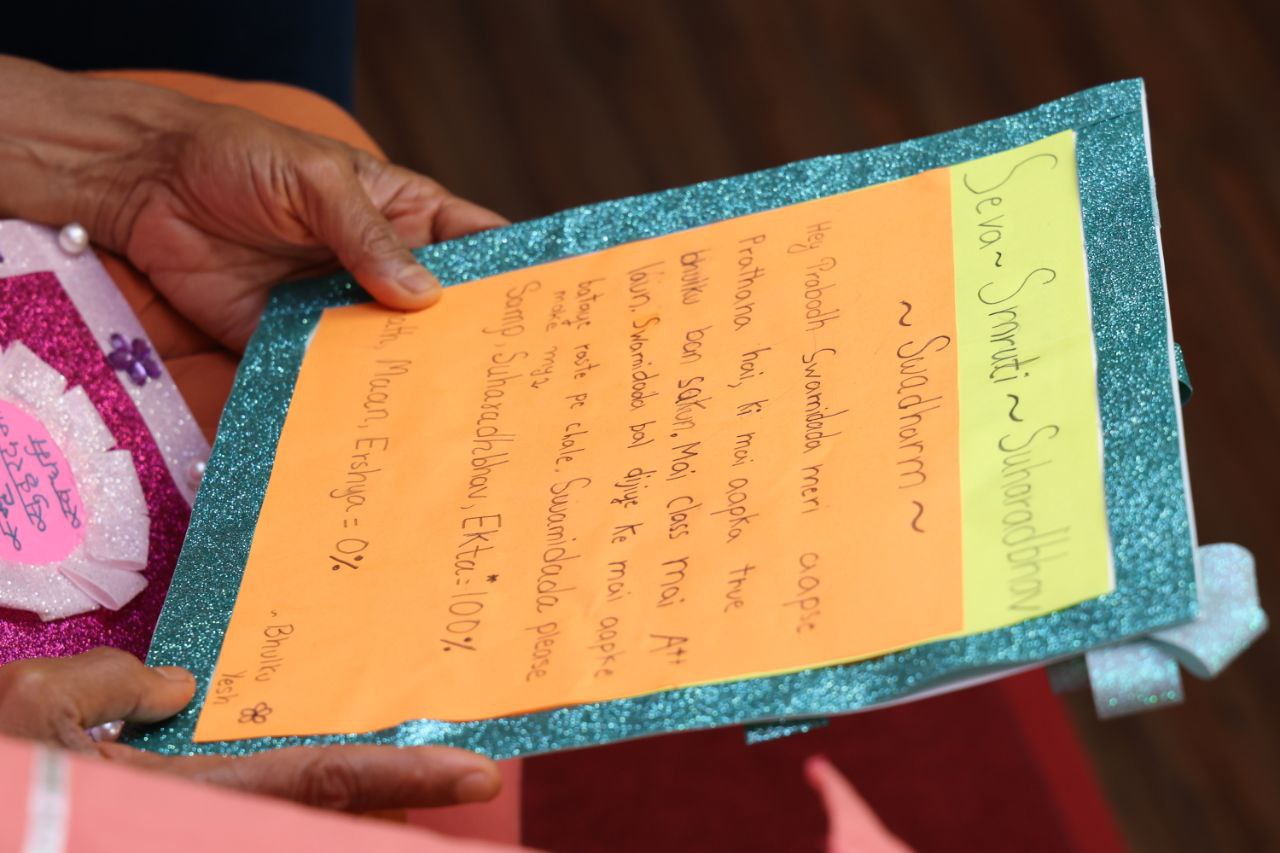 Seva ~ Smruti ~ Suharadbhav
~ Swadharm ~
Hey Prabodh Swamidada meri aapse
Prathana hai, ki mai aapka true
bhulku ban sakun. Mai class mai A++
laun. Swamidada bal dijiye ke mai aapke
bataye raste pe chale, Swamidada please
make my:
Samp, Suharadhbhav, Ekta = 100%
Maan, Ershya = 0%
~ Bhulku
Yesh